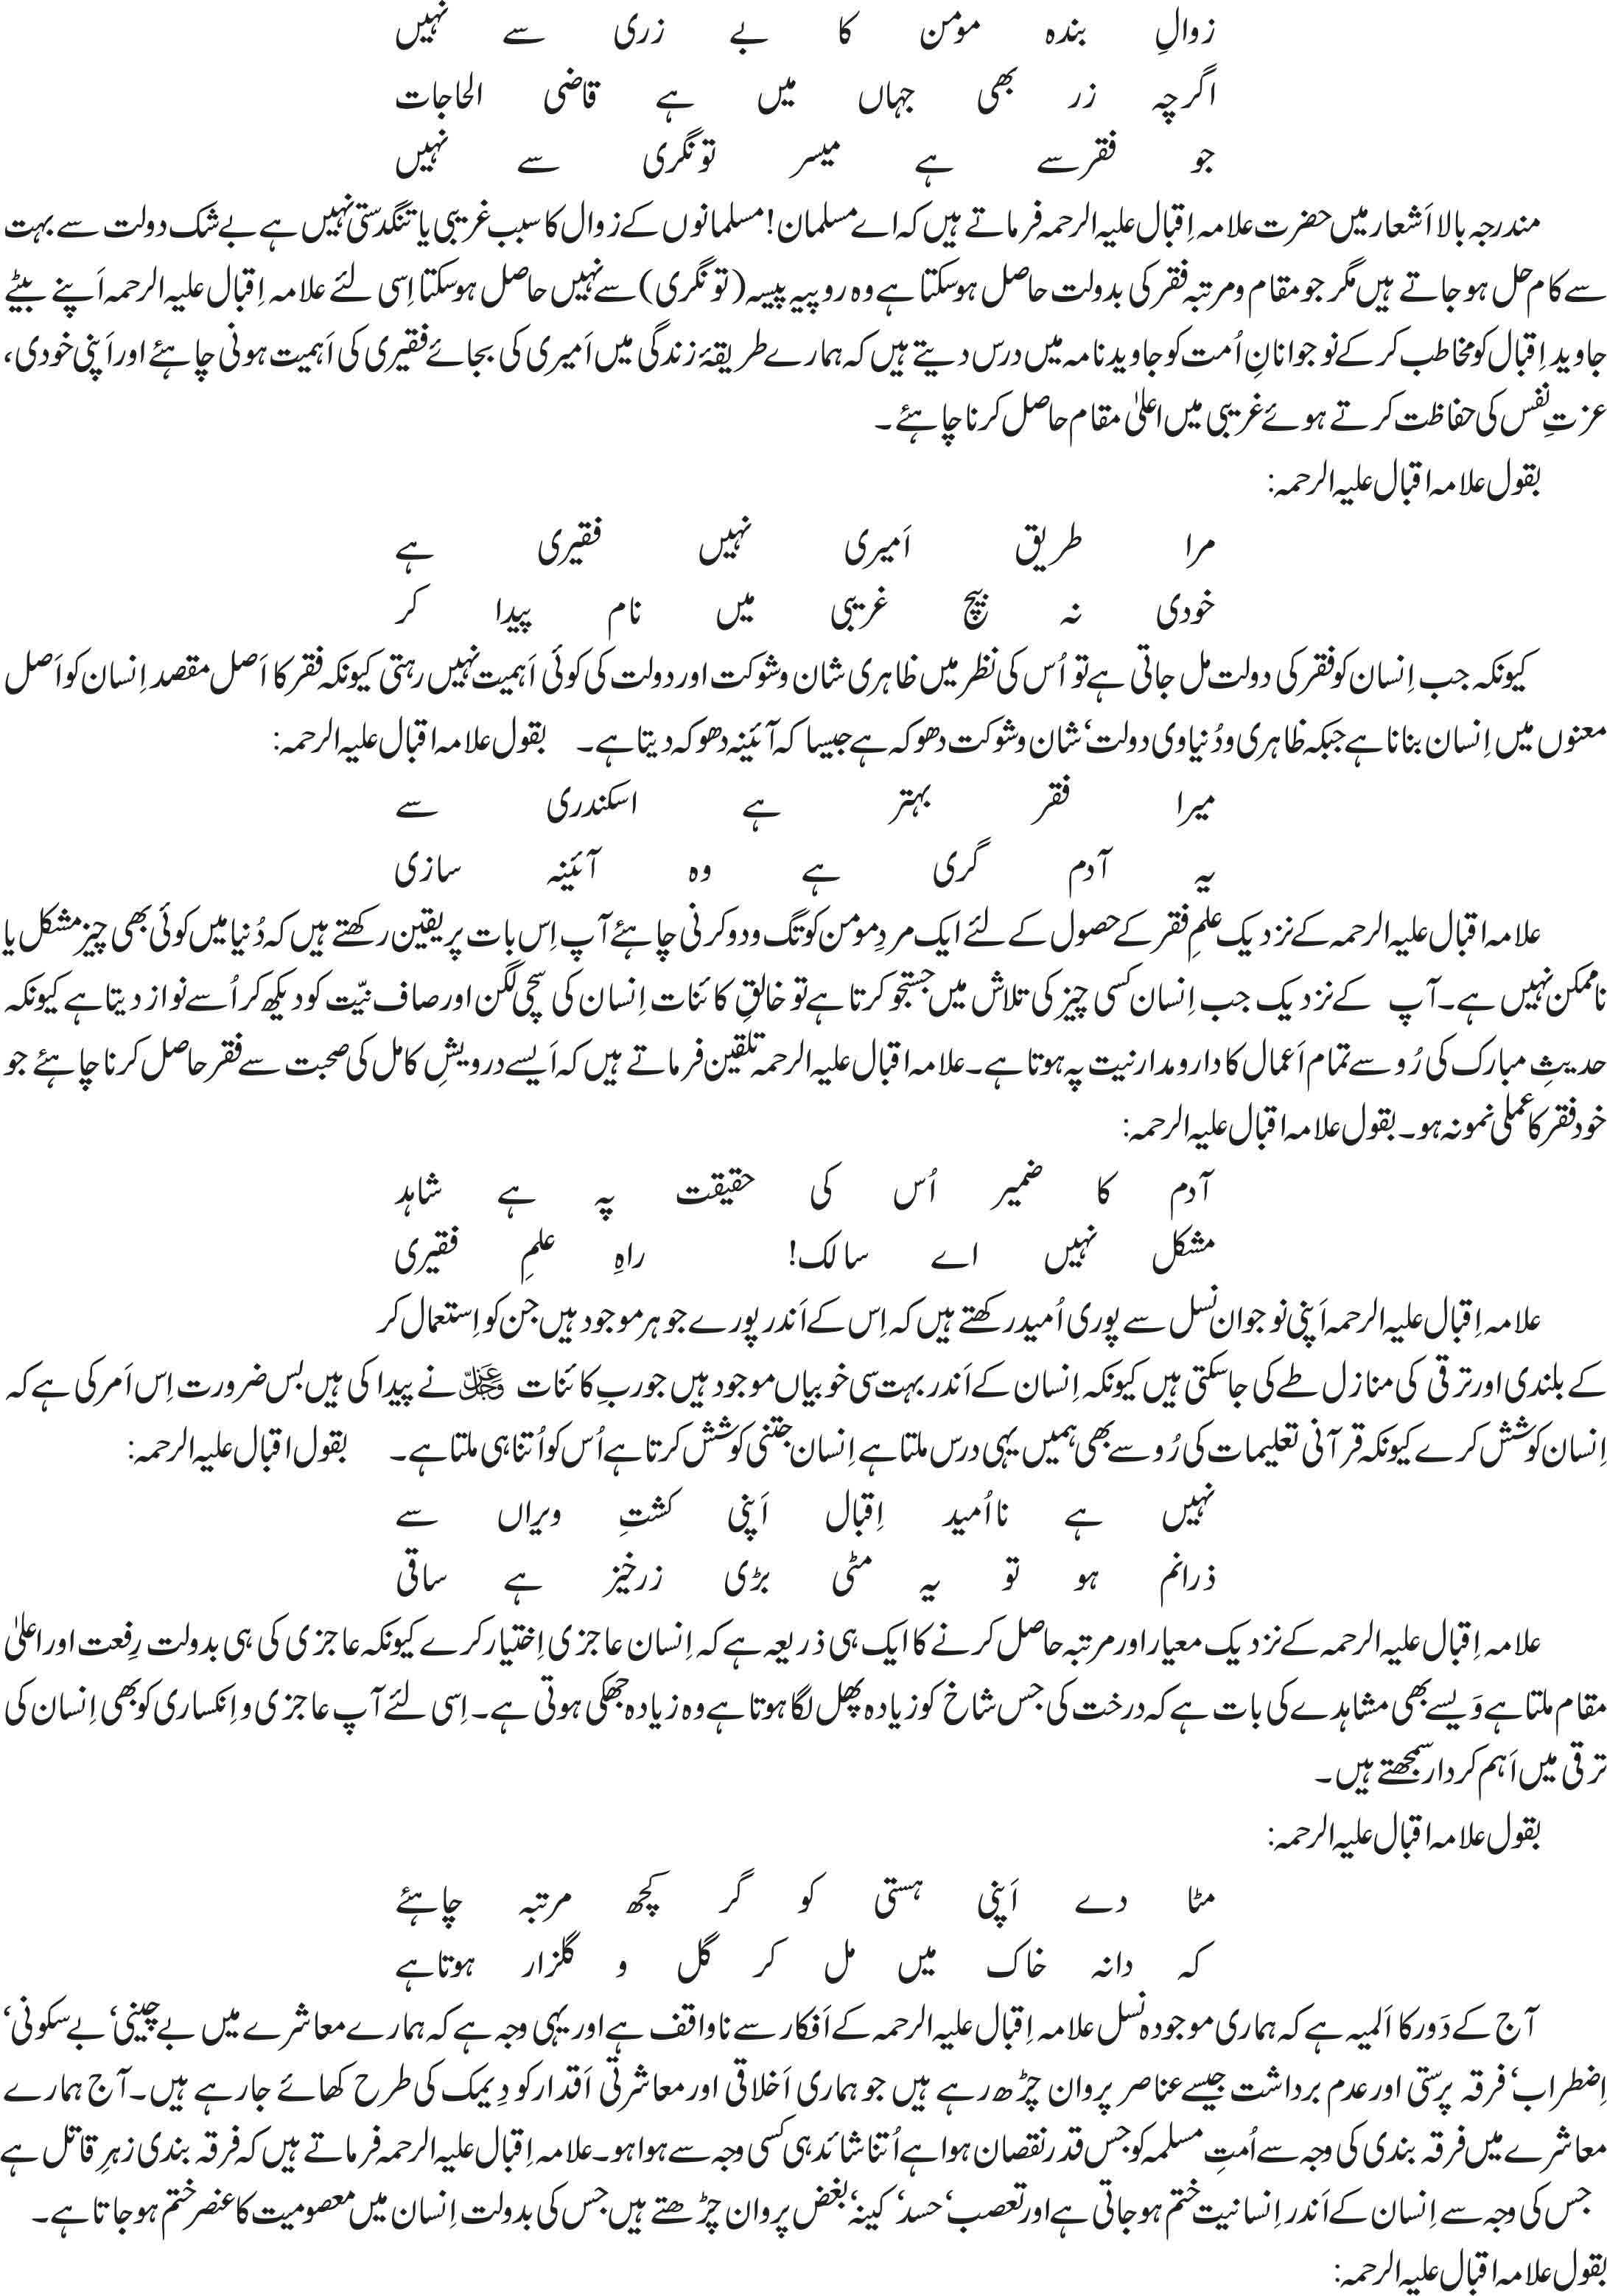 زوالِ بندہ مومن کا بے زری سے نہیں
اگرچہ زر بھی جہاں میں ہے قاضی الحاجات
جو فقرسے ہے میسر تونگری سے نہیں
مندرجہ بالا اَشعار میں حضرت علامہ اِقبال علیہ الرحمہ فرماتے ہیں کہ اے مسلمان! مسلمانوں کے زوال کا سبب غریبی یا تنگدستی نہیں ہے بے شک دولت سے بہت
سے کام حل ہو جاتے ہیں مگر جو مقام و مرتبہ فقر کی بدولت حاصل ہوسکتا ہے وہ روپیہ پیسہ (تونگری) سے نہیں حاصل ہوسکتا اِسی لئے علامہ اِقبال علیہ الرحمہ اَپنے بیٹے
جاوید اِقبال کو مخاطب کر کے نوجوانانِ اُمت کو جاوید نامہ میں درس دیتے ہیں کہ ہمارے طریقۂ زندگی میں اَمیری کی بجائے فقیری کی اَہمیت ہونی چاہئے اور اَپنی خودی،
عزتِ نفس کی حفاظت کرتے ہوئے غریبی میں اعلیٰ مقام حاصل کرنا چاہئے۔
بقول علامہ اقبال علیہ الرحمہ:
مرا طریق اَمیری نہیں فقیری ہے
خودی نہ بیچ غریبی میں نام پیدا کر
کیونکہ جب اِنسان کو فقر کی دولت مل جاتی ہے تو اُس کی نظر میں ظاہری شان و شوکت اور دولت کی کوئی اَہمیت نہیں رہتی کیونکہ فقر کا اَصل مقصد اِنسان کو اَصل
معنوں میں اِنسان بنانا ہے جبکہ ظاہری و دُنیاوی دولت‘ شان و شوکت دھوکہ ہے جیسا کہ آئینہ دھوکہ دیتا ہے۔ بقول علامہ اقبال علیہ الرحمہ:
میرا فقر بہتر ہے اسکندری سے
یہ آدم گری ہے وہ آئینہ سازی
علامہ اقبال علیہ الرحمہ کے نزدیک علمِ فقر کے حصول کے لئے ایک مردِ مومن کو تگ و دو کرنی چاہئے آپ اِس بات پر یقین رکھتے ہیں کہ دُنیا میں کوئی بھی چیز مشکل یا
ناممکن نہیں ہے۔ آپ کے نزدیک جب اِنسان کسی چیز کی تلاش میں جستجو کرتا ہے تو خالقِ کائنات اِنسان کی سچی لگن اور صاف نیّت کو دیکھ کر اُسے نواز دیتا ہے کیونکہ
حدیثِ مبارک کی رُو سے تمام اَعمال کا دارومدار نیت پہ ہوتا ہے۔ علامہ اقبال علیہ الرحمہ تلقین فرماتے ہیں کہ اَیسے درویشِ کامل کی صحبت سے فقر حاصل کرنا چاہئے جو
خود فقر کا عملی نمونہ ہو۔ بقول علامہ اقبال علیہ الرحمہ:
آدم کا ضمیر اُس کی حقیقت پہ ہے شاہد
مشکل نہیں اے سالک! راہِ علمِ فقیری
علامہ اِقبال علیہ الرحمہ اَپنی نوجوان نسل سے پوری اُمید رکھتے ہیں کہ اِس کے اَندر پورے جوہر موجود ہیں جن کو اِستعمال کر
کے بلندی اور ترقی کی منازل طے کی جاسکتی ہیں کیونکہ اِنسان کے اَندر بہت سی خوبیاں موجود ہیں جو ربِ کائنات عَزَّوَجَلَّ نے پیدا کی ہیں بس ضرورت اِس اَمر کی ہے کہ
اِنسان کوشش کرے کیونکہ قرآنی تعلیمات کی رُو سے بھی ہمیں یہی درس ملتا ہے اِنسان جتنی کوشش کرتا ہے اُس کو اُتنا ہی ملتا ہے۔ بقول اقبال علیہ الرحمہ:
نہیں ہے نااُمید اِقبال اَپنی کشتِ ویراں سے
ذرانم ہو تو یہ مٹی بڑی زرخیز ہے ساقی
علامہ اِقبال علیہ الرحمہ کے نزدیک معیار اور مرتبہ حاصل کرنے کا ایک ہی ذریعہ ہے کہ اِنسان عاجزی اِختیار کرے کیونکہ عاجزی کی ہی بدولت رِفعت اور اعلیٰ
مقام ملتا ہے وَیسے بھی مشاہدے کی بات ہے کہ درخت کی جس شاخ کو زیادہ پھل لگا ہوتا ہے وہ زیادہ جھکی ہوتی ہے۔ اِسی لئے آپ عاجزی و اِنکساری کو بھی اِنسان کی
ترقی میں اَہم کردار سمجھتے ہیں۔
بقول علامہ اقبال علیہ الرحمہ:
مٹا دے اَپنی ہستی کو گر کچھ مرتبہ چاہئے
کہ دانہ خاک میں مل کر گل و گلزار ہوتاہے
آج کے دَور کا اَلمیہ ہے کہ ہماری موجودہ نسل علامہ اِقبال علیہ الرحمہ کے اَفکار سے ناواقف ہے اور یہی وجہ ہے کہ ہمارے معاشرے میں بے چینی‘ بے سکونی‘
اِضطراب‘ فرقہ پرستی اور عدم برداشت جیسے عناصر پروان چڑھ رہے ہیں جو ہماری اَخلاقی اور معاشرتی اَقدار کو دِیمک کی طرح کھائے جارہے ہیں۔ آج ہمارے
معاشرے میں فرقہ بندی کی وجہ سے اُمتِ مسلمہ کو جس قدر نقصان ہوا ہے اُتنا شائد ہی کسی وجہ سے ہوا ہو۔ علامہ اِقبال علیہ الرحمہ فرماتے ہیں کہ فرقہ بندی زہرِ قاتل ہے
جس کی وجہ سے اِنسان کے اَندر اِنسانیت ختم ہو جاتی ہے اور تعصب‘ حسد‘ کینہ‘ بغض پروان چڑھتے ہیں جس کی بدولت اِنسان میں معصومیت کا عنصر ختم ہو جاتا ہے۔
بقول علامہ اقبال علیہ الرحمہ: